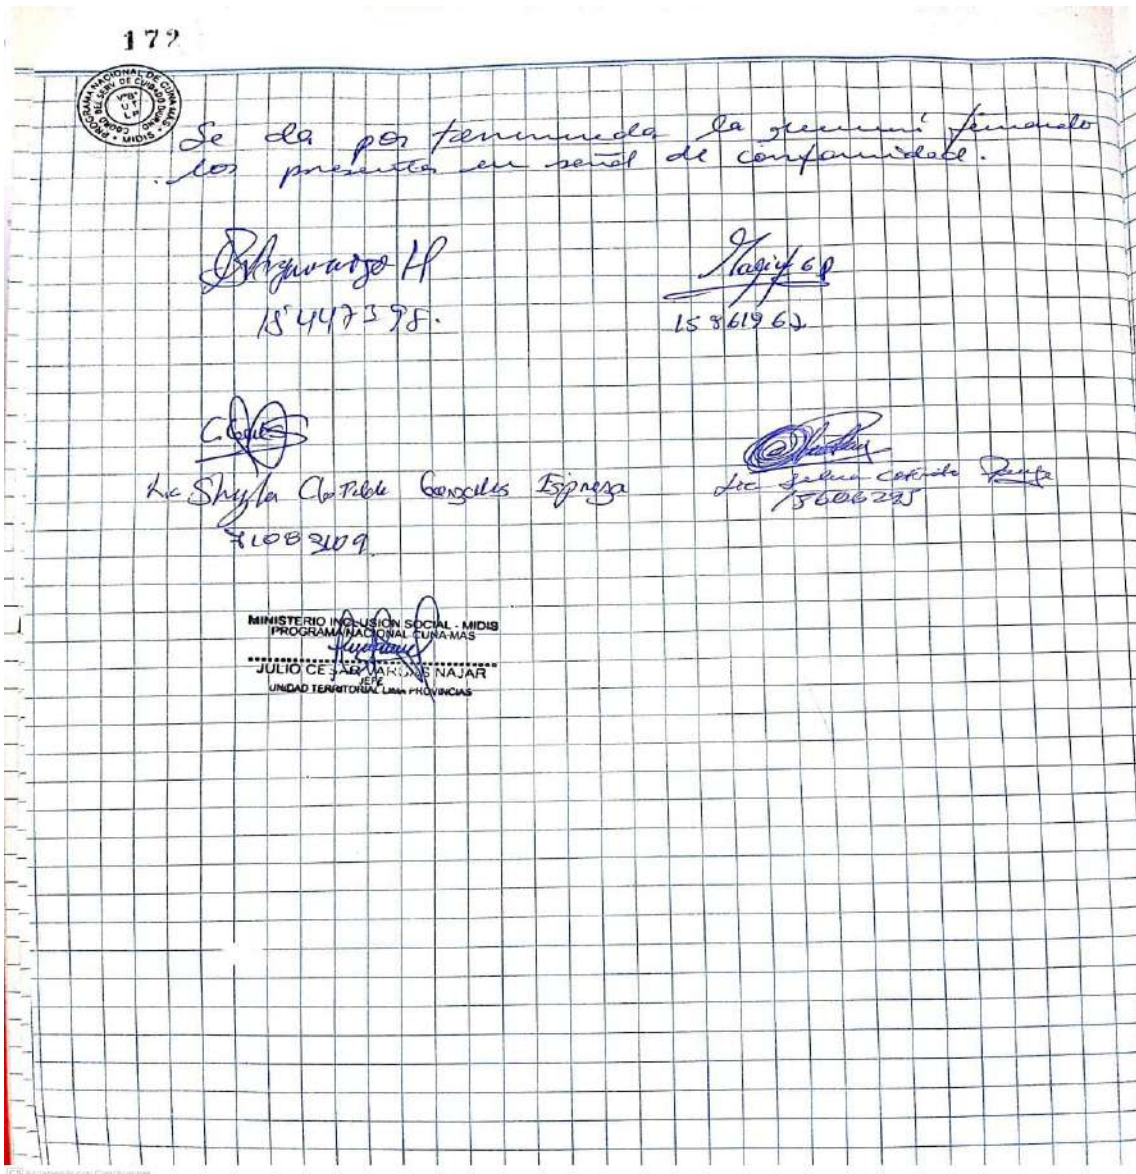 172
PROGRAMA NACIONAL DE CUNA MAS
COORD DEL SERV DE CUIDADO DIURNO
V°B°
U T
L P
MIDIS
Se da por terminada la reunión firmando
los presentes en señal de conformidad.
15447398.
15861962
Lic Shyla Clotilde Gonzales Espinoza
Lic
15606295
71083109
MINISTERIO INCLUSION SOCIAL - MIDIS
PROGRAMA NACIONAL CUNA MAS
JULIO CESAR VARGAS NAJAR
JEFE
UNIDAD TERRITORIAL LIMA PROVINCIAS